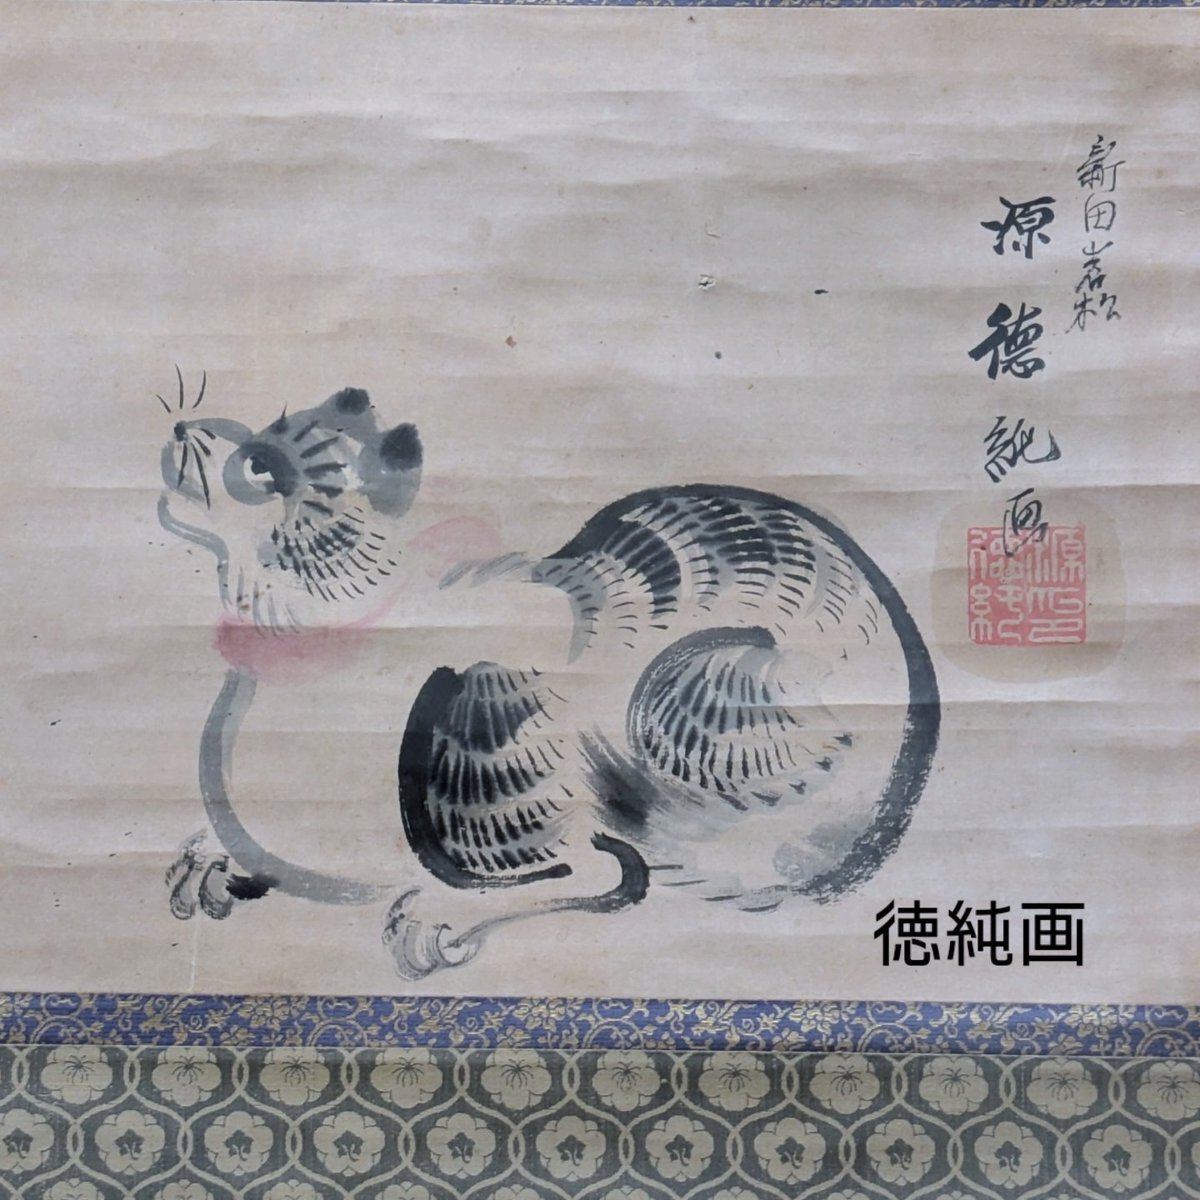 新田岩松
源徳純画
源徳純印
徳純画